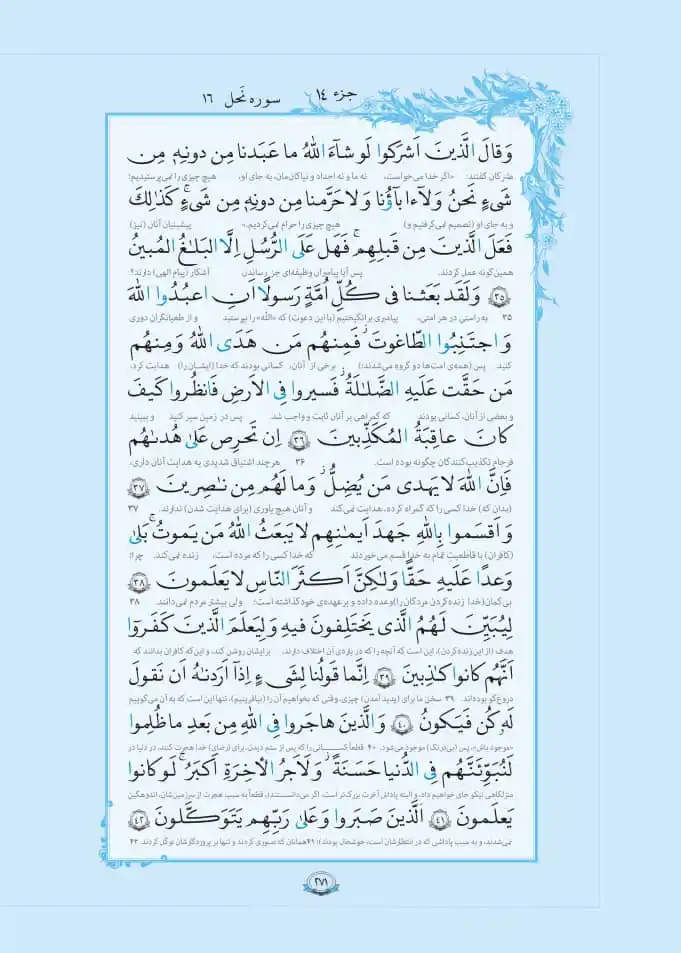 جزء ١٤ سوره نَحل ١٦
وَقالَ الَّذينَ اَشرَكوا لَو شاءَ اللّٰهُ ما عَبَدنا مِن دونِهٖ مِن
مشرکان گفتند: «اگر خدا می‌خواست، نه ما و نه اجداد و نیاکان‌مان، به جای او، هیچ چیزی را نمی‌پرستیدیم؛
شَیءٍ نَحنُ وَلا ءاباؤُنا وَلا حَرَّمنا مِن دونِهٖ مِن شَیءٍ ۚ كَذٰلِكَ
و به جای او (تصمیم نمی‌گرفتیم و) هیچ چیزی را حرام نمی‌کردیم.» پیشینیان آنان (نیز)
فَعَلَ الَّذينَ مِن قَبلِهِم ۚ فَهَل عَلَی الرُّسُلِ اِلَّا البَلاغُ المُبينُ
همین‌گونه عمل کردند. پس آیا پیامبران وظیفه‌ای جز رساندن آشکار (پیام الهی) دارند؟
﴿٣٥﴾ وَلَقَد بَعَثنا فی كُلِّ اُمَّةٍ رَسولًا اَنِ اعبُدُوا اللّٰهَ
۳۵ به راستی در هر امتی، پیامبری برانگیختیم (با این دعوت) که «الله» را بپرستید و از طغیانگران دوری
وَ اجتَنِبُوا الطّاغوتَ ۖ فَمِنهُم مَن هَدَی اللّٰهُ وَمِنهُم
کنید. پس (همه‌ی امت‌ها دو گروه می‌شدند؛) برخی از آنان، کسانی بودند که خدا (ایشان را) هدایت کرد،
مَن حَقَّت عَلَيهِ الضَّلٰلَةُ ۚ فَسيروا فِی الاَرضِ فَانظُروا كَيفَ
و بعضی از آنان، کسانی بودند که گمراهی بر آنان ثابت و واجب شد. پس در زمین سیر کنید و ببینید
كانَ عاقِبَةُ المُكَذِّبينَ ﴿٣٦﴾ اِن تَحرِص عَلیٰ هُدىٰهُم
فرجام تکذیب‌کنندگان چگونه بوده است. ۳۶ هر چند اشتیاق شدیدی به هدایت آنان داری،
فَاِنَّ اللّٰهَ لا يَهدی مَن يُضِلُّ ۖ وَما لَهُم مِن ناٰصِرينَ ﴿٣٧﴾
(بدان که) خدا کسی را که گمراه کرده، هدایت نمی‌کند و آنان هیچ یاوری (برای هدایت شدن) ندارند. ۳۷
وَ اَقسَموا بِاللّٰهِ جَهدَ اَيمٰنِهِم لا يَبعَثُ اللّٰهُ مَن يَموتُ ۚ بَلیٰ
(کافران) با قاطعیت تمام به خدا قسم می‌خوردند که خدا کسی را که مرده است، زنده نمی‌کند. چرا؛
وَعدًا عَلَيهِ حَقًّا وَلٰكِنَّ اَكثَرَ النّاسِ لا يَعلَمونَ ﴿٣٨﴾
بی‌گمان (خدا زنده کردن مردگان را) وعده داده و بر عهده‌ی خود گذاشته است؛ ولی بیشتر مردم نمی‌دانند. ۳۸
لِيُبَيِّنَ لَهُمُ الَّذی يَختَلِفونَ فيهِ وَلِيَعلَمَ الَّذينَ كَفَروا
هدف (از این زنده کردن)، این است که آنچه را که در باره‌ی آن اختلاف دارند، برایشان روشن کند، و این که کافران بدانند که
اَنَّهُم كانوا كٰذِبينَ ﴿٣٩﴾ اِنَّما قَولُنا لِشَیءٍ اِذا اَرَدنٰهُ اَن نَقولَ
دروغ‌گو بوده‌اند. ۳۹ سخن ما برای (پدید آمدن) چیزی، وقتی که بخواهیم آن را (بیافرینیم)، تنها این است که به آن می‌گوییم
لَهٗ كُن فَيَكونُ ﴿٤٠﴾ وَالَّذينَ هاجَروا فِی اللّٰهِ مِن بَعدِ ما ظُلِموا
«موجود باش»، پس (بی‌درنگ) موجود می‌شود. ۴۰ قطعاً کسانی را که پس از ستم دیدن، برای (رضای) خدا هجرت کنند، در دنیا در
لَنُبَوِّئَنَّهُم فِی الدُّنيا حَسَنَةً ۖ وَلَاَجرُ الاٰخِرَةِ اَكبَرُ ۚ لَو كانوا
منزلگاهی نیکو جای خواهیم داد، و البته پاداش آخرت بزرگ‌تر است، اگر می‌دانستند (قطعاً به سبب هجرت از سرزمین‌شان، اندوهگین
يَعلَمونَ ﴿٤١﴾ الَّذينَ صَبَروا وَعَلیٰ رَبِّهِم يَتَوَكَّلونَ ﴿٤٢﴾
نمی‌شدند، و به سبب پاداشی که در انتظارشان است، خوشحال بودند)؛ ۴۱ همانان که صبوری کردند و تنها بر پروردگارشان توکل کردند. ۴۲
٢٧١